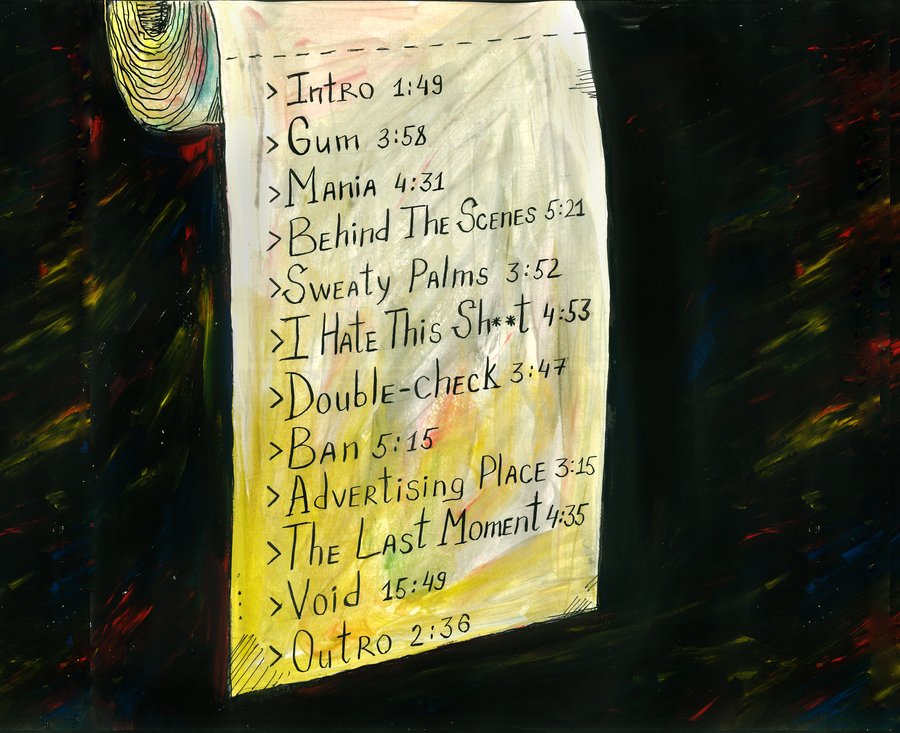 > Intro 1:49
> Gum 3:58
> Mania 4:31
> Behind The Scenes 5:21
> Sweaty Palms 3:52
> I Hate This Sh**t 4:53
> Double-check 3:47
> Ban 5:15
> Advertising Place 3:15
> The Last Moment 4:35
> Void 15:49
> Outro 2:36